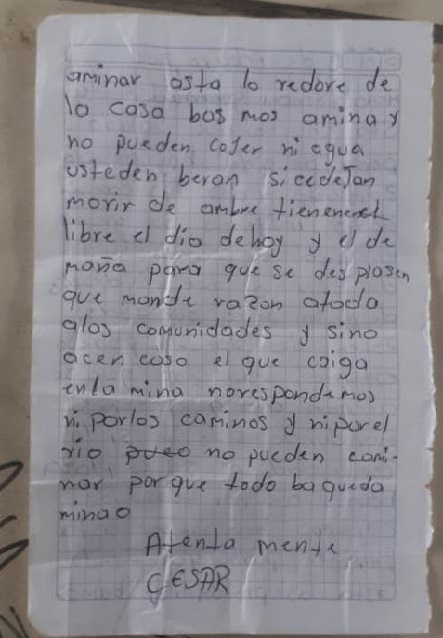 aminar asta lo redore de
lo casa bos mos aminar y
no pueden coJer ni agua
usteden beran si cedeJan
morir de ambre tienenel
libre el dia dehoy y el de
moña para que se des plasen
que mande razon atoda
alos comunidades y sino
acen caso el que caiga
enla mina norespondemos
ni porlos caminos y niporel
rio no pueden cami-
nar porque todo baqueda
minao
Atenta mente
CESAR